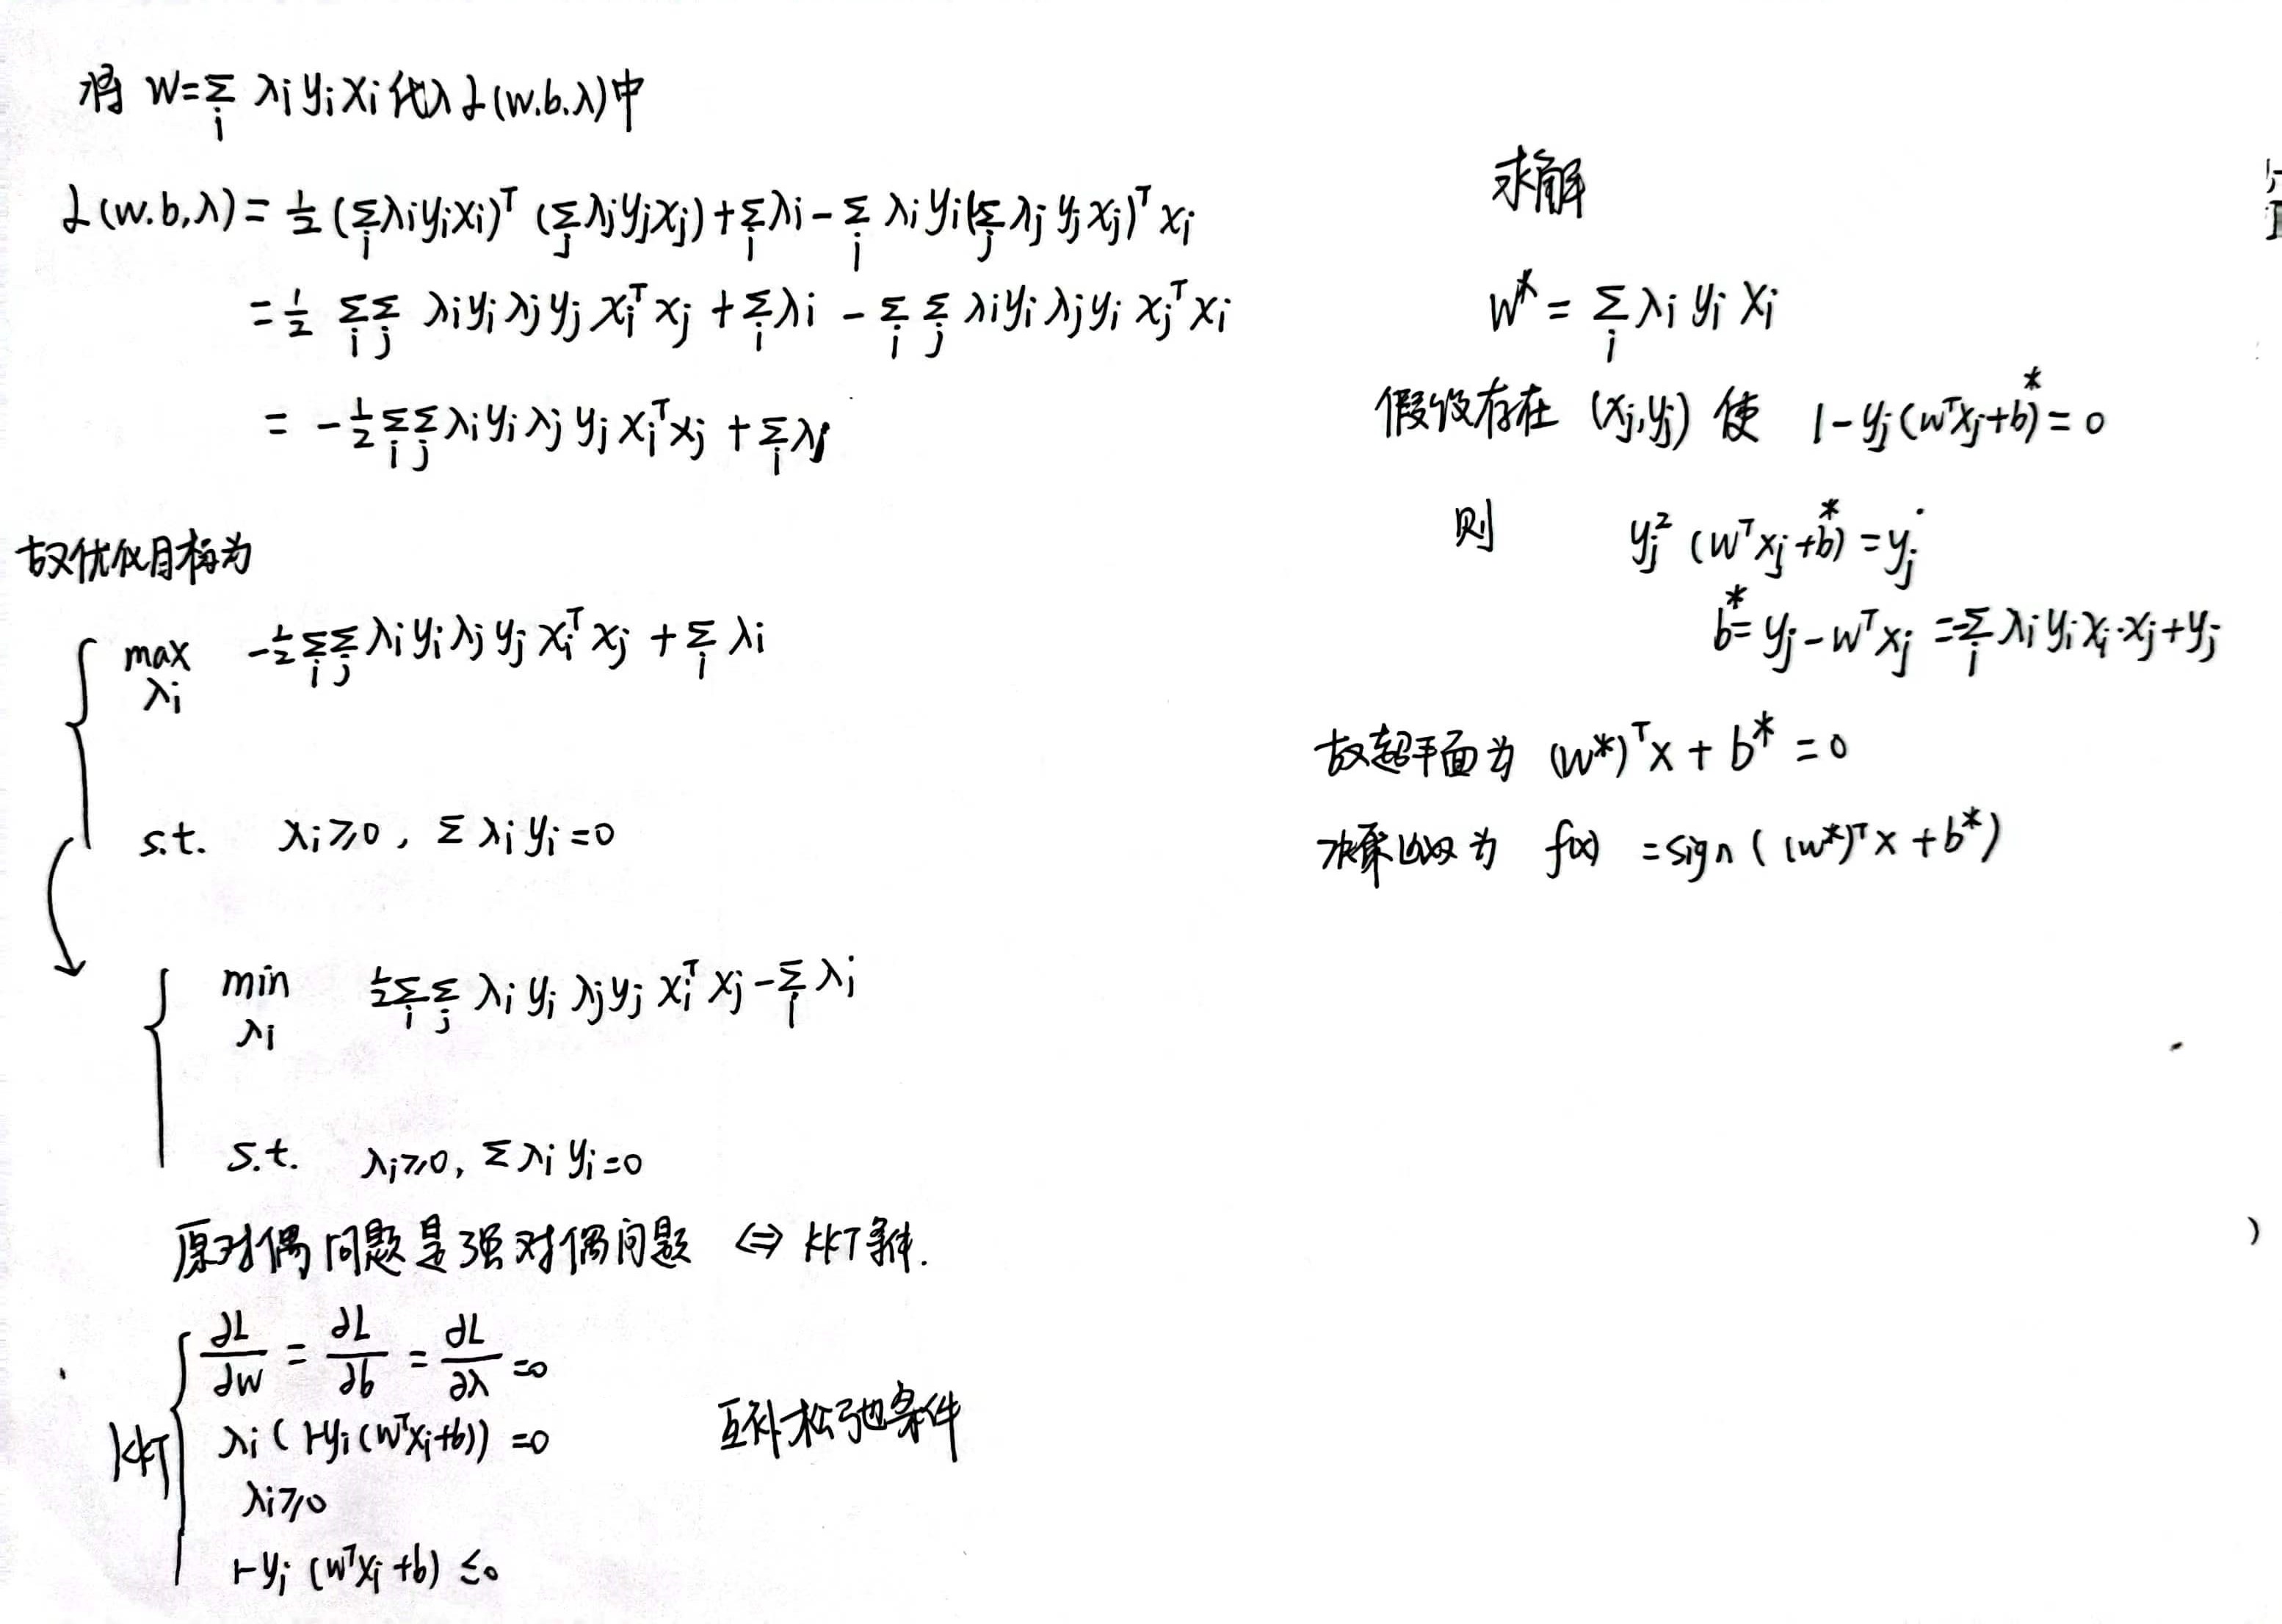 将 w=∑_i λ_i y_i x_i 代入 L(w.b.λ)中
L(w.b,λ) = 1/2 (∑_i λ_i y_i x_i)^T (∑_j λ_j y_j x_j) + ∑_i λ_i - ∑_i λ_i y_i (∑_j λ_j y_j x_j)^T x_i
= 1/2 ∑_i ∑_j λ_i y_i λ_j y_j x_i^T x_j + ∑_i λ_i - ∑_i ∑_j λ_i y_i λ_j y_i x_j^T x_i
= -1/2 ∑_i ∑_j λ_i y_i λ_j y_j x_i^T x_j + ∑_i λ_i
故优化目标为
max_{λ_i} -1/2 ∑_i ∑_j λ_i y_i λ_j y_j x_i^T x_j + ∑_i λ_i
s.t. λ_i ≥ 0, ∑ λ_i y_i = 0
min_{λ_i} 1/2 ∑_i ∑_j λ_i y_i λ_j y_j x_i^T x_j - ∑_i λ_i
s.t. λ_i ≥ 0, ∑ λ_i y_i = 0
原对偶问题是强对偶问题 ⇔ KKT条件.
KKT
∂L/∂w = ∂L/∂b = ∂L/∂λ = 0
λ_i (1-y_i (w^T x_i+b)) = 0 互补松弛条件
λ_i ≥ 0
1-y_i (w^T x_i + b) ≤ 0
求解
w* = ∑_i λ_i y_i x_i
假设存在 (x_j,y_j) 使 1 - y_j (w^T x_j + b*) = 0
则 y_j^2 (w^T x_j + b*) = y_j
b* = y_j - w^T x_j = -∑_i λ_i y_i x_i·x_j + y_j
故超平面为 (w*)^T x + b* = 0
决策函数为 f(x) = sign ( (w*)^T x + b*)